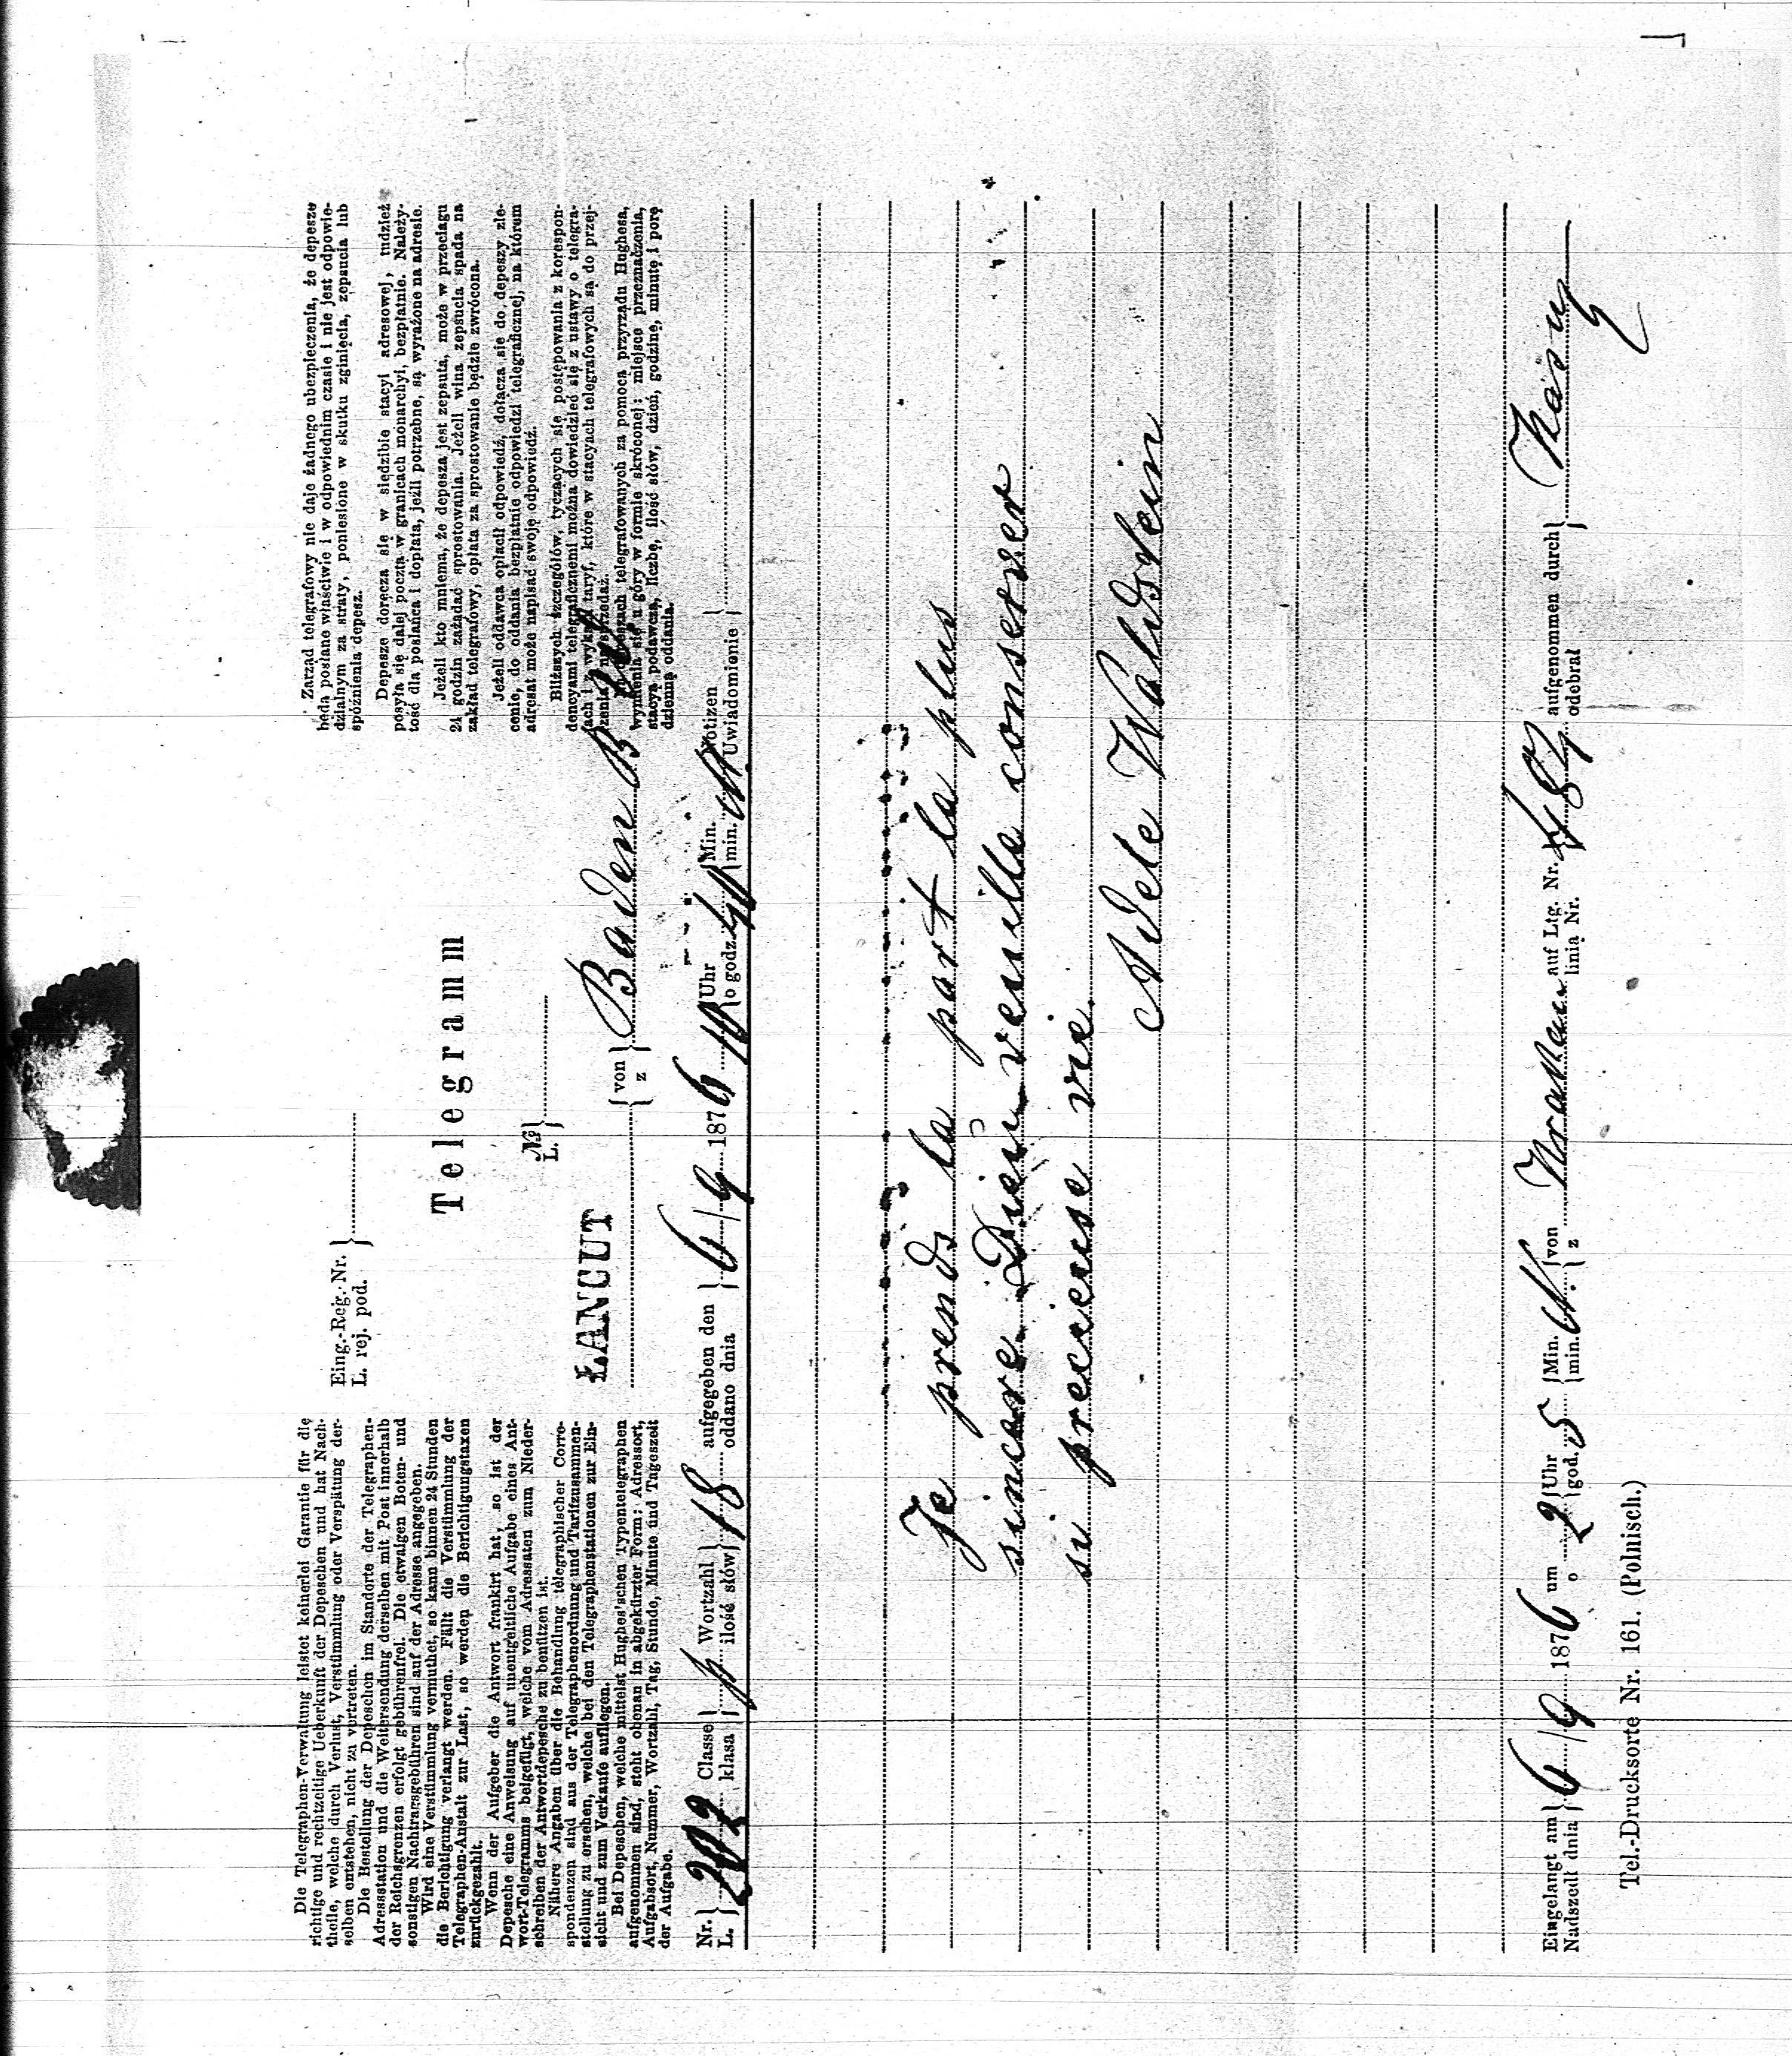 Die Telegraphen-Verwaltung leistet keinerlei Garantie für die
richtige und rechtzeitige Ueberkunft der Depeschen und hat Nach-
theile, welche durch Verlust, Verstümmlung oder Verspätung der-
selben entstehen, nicht zu vertreten.
Die Bestellung der Depeschen im Standorte der Telegraphen-
Adressstation und die Weitersendung derselben mit Post innerhalb
der Reichsgrenzen erfolgt gebührenfrei. Die etwaigen Boten- und
sonstigen Nachtragsgebühren sind auf der Adresse angegeben.
Wird eine Verstümmlung vermuthet, so kann binnen 24 Stunden
die Berichtigung verlangt werden. Fällt die Verstümmlung der
Telegraphen-Anstalt zur Last, so werden die Berichtigungstaxen
zurückgezahlt.
Wenn der Aufgeber die Antwort frankirt hat, so ist der
Depesche eine Anweisung auf unentgeltliche Aufgabe eines Ant-
wort-Telegramms beigefügt, welche vom Adressaten zum Nieder-
schreiben der Antwortdepesche zu benützen ist.
Nähere Angaben über die Behandlung telegraphischer Corre-
spondenzen sind aus der Telegraphenordnung und Tarifzusammen-
stellung zu ersehen, welche bei den Telegraphenstationen zur Ein-
sicht und zum Verkaufe aufliegen.
Bei Depeschen, welche mittelst Hughes'schen Typentelegraphen
aufgenommen sind, steht obenan in abgekürzter Form: Adressort,
Aufgabsort, Nummer, Wortzahl, Tag, Stunde, Minute und Tageszeit
der Aufgabe.
Eing.-Reg. Nr.
L. rej. pod.
Telegramm
№
L.
ŁANCUT
von
z
Baden B
Zarząd telegrafowy nie daje żadnego ubezpieczenia, że depesze
będą posłane właściwie i w odpowiednim czasie i nie jest odpowie-
dzialnym za straty, poniesione w skutku zginięcia, zepsucia lub
spóźnienia depesz.
Depesze doręcza się w siedzibie stacyi adresowej, tudzież
posyła się dalej pocztą w granicach monarchyi, bezpłatnie. Należy-
tość dla posłańca i dopłata, jeźli potrzebne, są wyrażone na adresie.
Jeżeli kto mniema, że depesza jest zepsuta, może w przeciągu
24 godzin zażądać sprostowania. Jeżeli wina zepsucia spada na
zakład telegrafowy, opłata za sprostowanie będzie zwrócona.
Jeżeli oddawca opłacił odpowiedź, dołącza się do depeszy zle-
cenie, do oddania bezpłatnie odpowiedzi telegraficznej, na którem
adresat może napisać swoję odpowiedź.
Bliższych szczegółów, tyczących się postępowania z korespon-
dencyami telegraficznemi można dowiedzieć się z ustawy o telegra-
fach i z wykazu taryf, które w stacyach telegrafowych są do przej-
rzenia i na sprzedaż.
W depeszach telegrafowanych za pomocą przyrządu Hughesa,
wymienia się u góry w formie skróconej: miejsce przeznaczenia,
stacyą podawczą, liczbę, ilość słów, dzień, godzinę, minutę i porę
dzienną oddania.
Nr. 202 Classe Wortzahl 18 aufgegeben den 6/9 1876 10 Uhr 40 Min. Notizen
L. klasa ilość słów oddano dnia o godz. min. Uwiadomienie
Je prends la part la plus
sincere Dieu veuille conserver
si precieuse vie
Adele Waldstein
Eingelangt am 6/9 1876 um 2 Uhr 5 Min. von Krakau auf Ltg. Nr. aufgenommen durch
Nadszedł dnia o god. min. z linią Nr. odebrał
Tel.-Drucksorte Nr. 161. (Polnisch.)